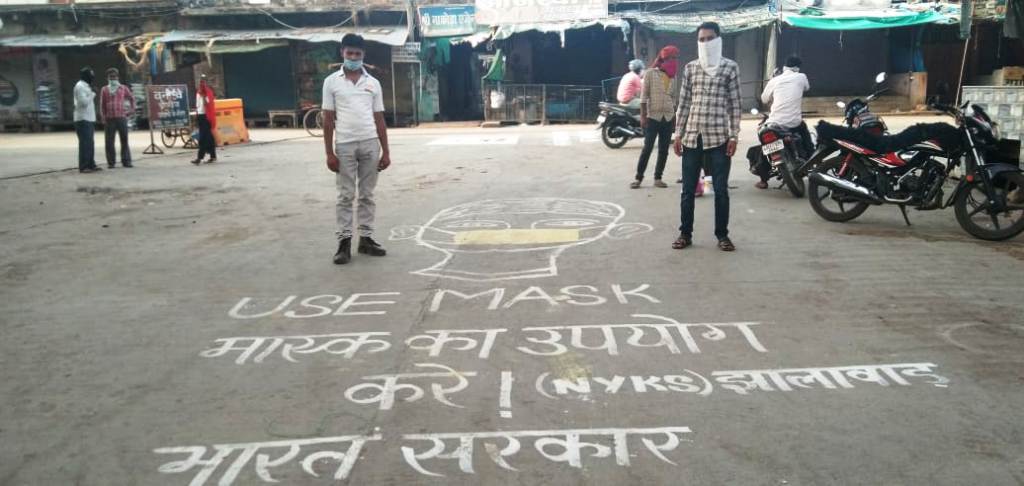 USE MASK
मास्क का उपयोग
करे ! (NYKS) झालावाड़
भारत सरकार